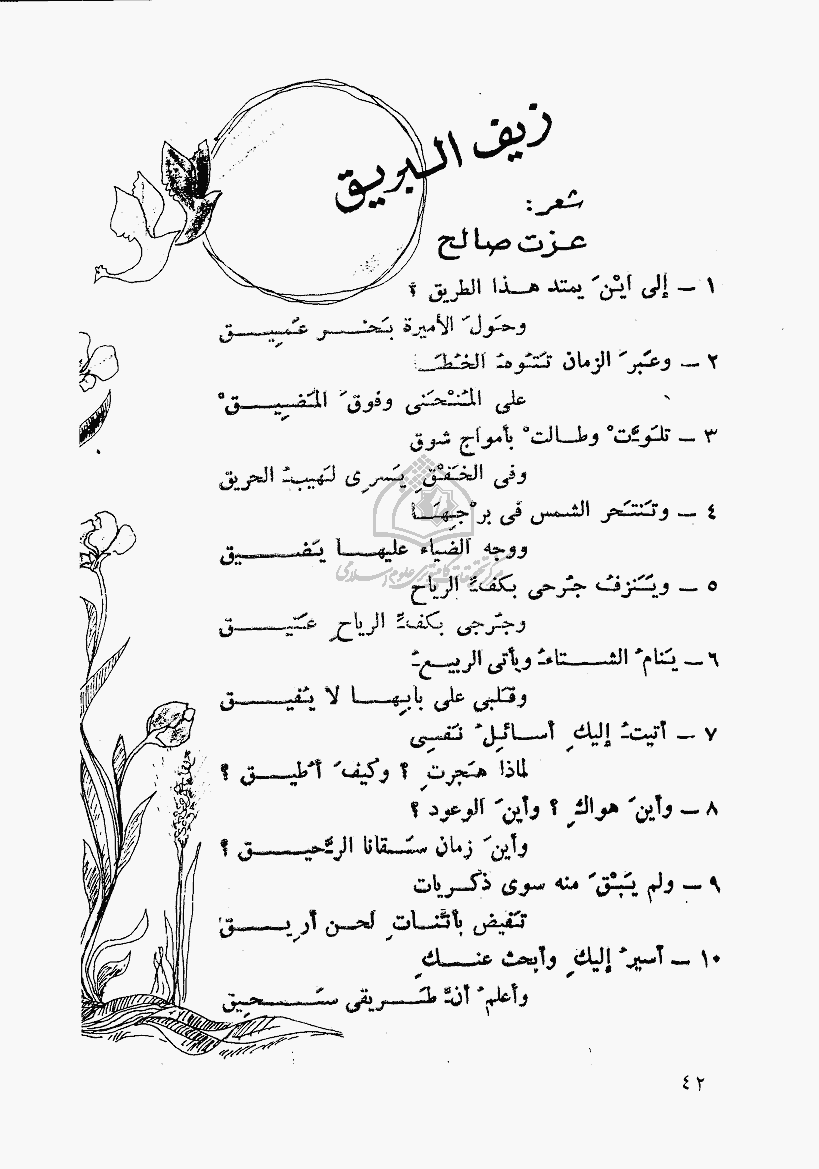 زيف البريق
شعر:
عزت صالح
١ - إلى أيْنَ يمتد هذا الطريق ؟
وحَولَ الأميرة بَحْر عَمِيق
٢ - وعَبرَ الزمان تَتُوهُ الخُطَا
على المُنْحَنى وفوقَ المَضِيقْ
٣ - تلوَّتْ وطالتْ بأمواج شوق
وفى الخَفْقِ يَسرِى لهيبُ الحريق
٤ - وتَنتَحر الشمس فى برْجِهَا
ووجه الضياء عليها يَضِيق
٥ - ويَنزفُ جُرحى بكفِّ الرياح
وجُرحى بكفِّ الرياحِ عَتيق
٦ - يَنامُ الشتاءُ ويأتى الربيعُ
وقَلبي على بابِها لا يُفيق
٧ - أتيتُ إليكِ أسائِلُ نَفسِى
لماذا هَجرتِ ؟ وكيفَ أُطيق ؟
٨ - وأينَ هواكِ ؟ وأينَ الوعود ؟
وأينَ زمان سَقانا الرَّحيق ؟
٩ - ولم يَبْقَ منه سوى ذكريات
تَفيض بأنَّاتِ لحن أرِيق
١٠ - أسيرُ إليكِ وأبحث عنكِ
وأعلمُ أنَّ طَريقى سَحِيق
مركز تحقيقات كامپيوترى علوم اسلامى
٤٢